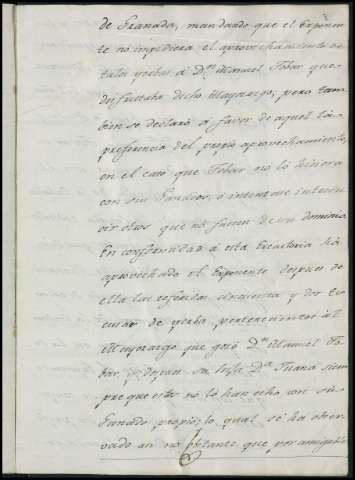 de Granada, mandando que el Exponen
te no impidiera el aprovechamiento de
tales yerbas á Dn. Manuel Tobar que
disfrutaba dicho Mayorazgo; pero tam
bien se declaró á favor de aquel la
preferencia del propio aprovechamiento,
en el caso que Tobar no lo hiciera
con sus Ganados, ó intentase introdu
cir otros que no fuesen de su dominio
En conformidad á esta Executoria há
aprovechado el Exponente despues de
ella las referidas cinquenta y dos
cuerdas de yerba, pertenecientes al
Mayorazgo que gozó Dn. Manuel To
bar, y despues su hija Da. Juana siem
pre que estos no lo han echo con su
Ganado propio; lo qual se há obser
vado asi no obstante que por amigable